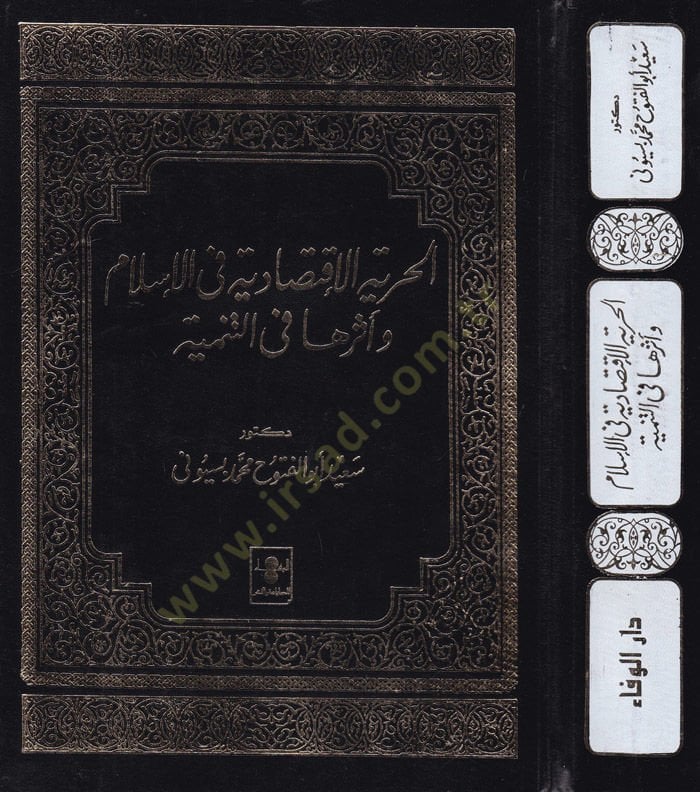 الحرية الإقتصادية فى الإسلام
وأثرها فى التنمية
دكتور
سعيد أبو الفتوح محمد بسيونى
الوفاء
www.irsad.com.tr
دكتور
سعيد أبو الفتوح محمد بسيونى
الحرية الإقتصادية فى الإسلام
وأثرها فى التنمية
دار الوفاء